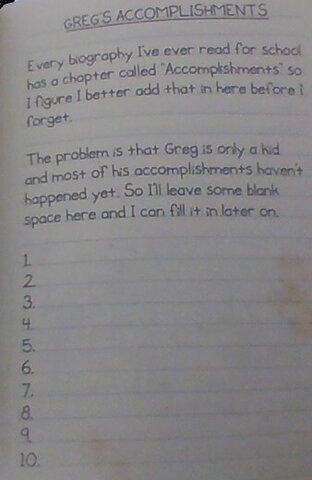 GREG'S ACCOMPLISHMENTS
Every biography I've ever read for school
has a chapter called "Accomplishments" so
I figure I better add that in here before I
forget.
The problem is that Greg is only a kid
and most of his accomplishments haven't
happened yet. So I'll leave some blank
space here and I can fill it in later on.
1.
2.
3.
4.
5.
6.
7.
8.
9.
10.